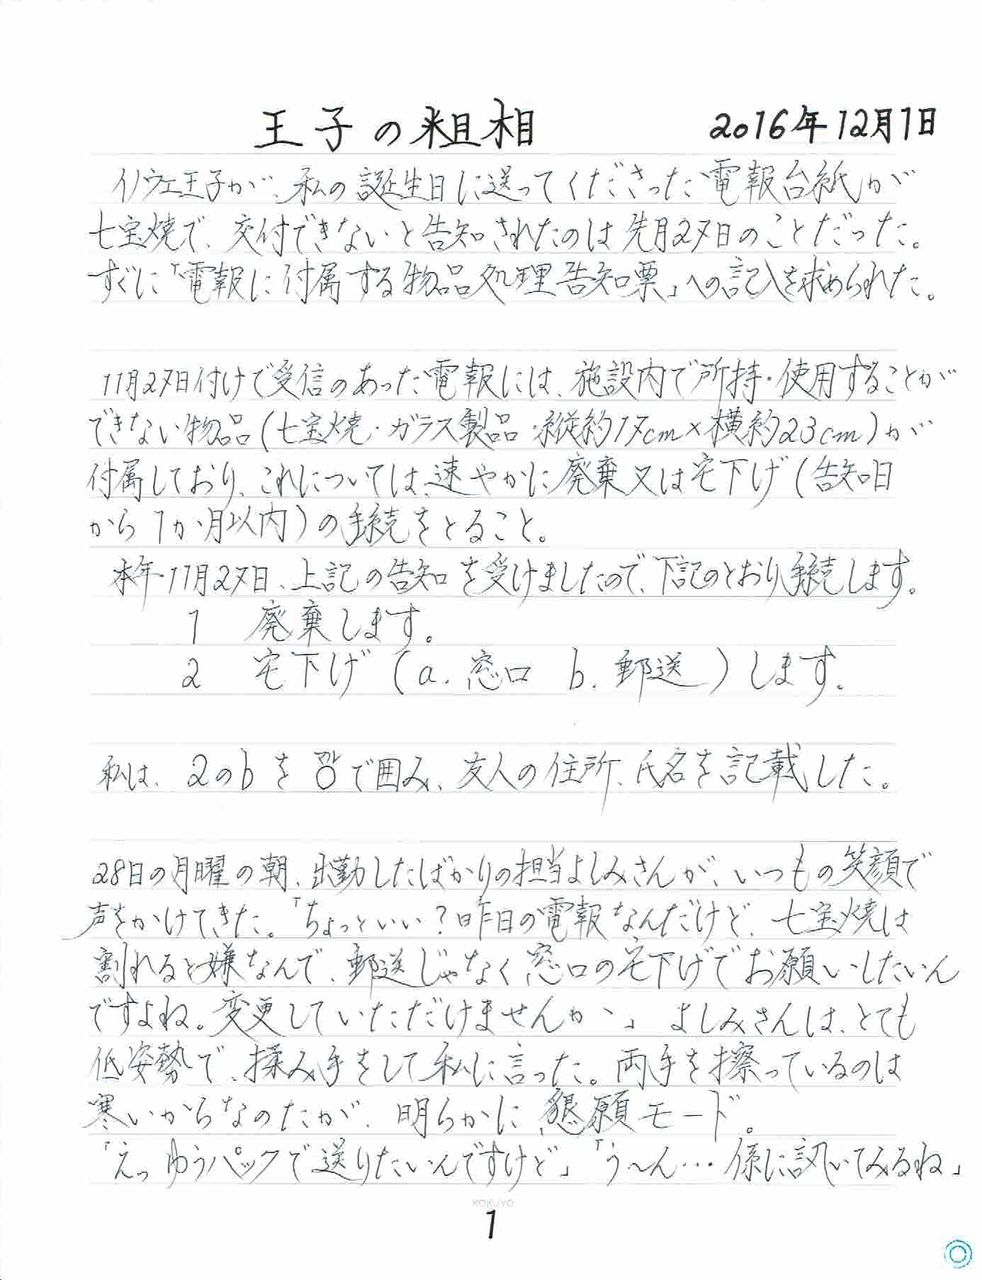 王子の粗相　2016年12月1日
イノウエ王子が、私の誕生日に送ってくださった電報台紙が
七宝焼で、交付できないと告知されたのは先月27日のことだった。
すぐに「電報に付属する物品処理告知票」への記入を求められた。
11月27日付けで受信のあった電報には、施設内で所持・使用することが
できない物品(七宝焼・ガラス製品・縦約17cm×横約23cm)が
付属しており、これについては、速やかに廃棄又は宅下げ(告知日
から1か月以内)の手続をとること。
本年11月27日、上記の告知を受けましたので、下記のとおり手続します。
1　廃棄します。
2　宅下げ(a. 窓口　b. 郵送)します。
私は、2のbを で囲み、友人の住所、氏名を記載した。
28日の月曜の朝、出勤したばかりの担当よしみさんが、いつもの笑顔で
声をかけてきた。「ちょっといい?昨日の電報なんだけど、七宝焼は
割れると嫌なんで、郵送じゃなく窓口の宅下げでお願いしたいん
ですよね。変更していただけませんか〜」よしみさんは、とても
低姿勢で、揉み手をして私に言った。両手を擦っているのは
寒いからなのだが、明らかに懇願モード。
「えっゆうパックで送りたいんですけど」「う〜ん…係に訊いてみるね」
KOKUYO
1